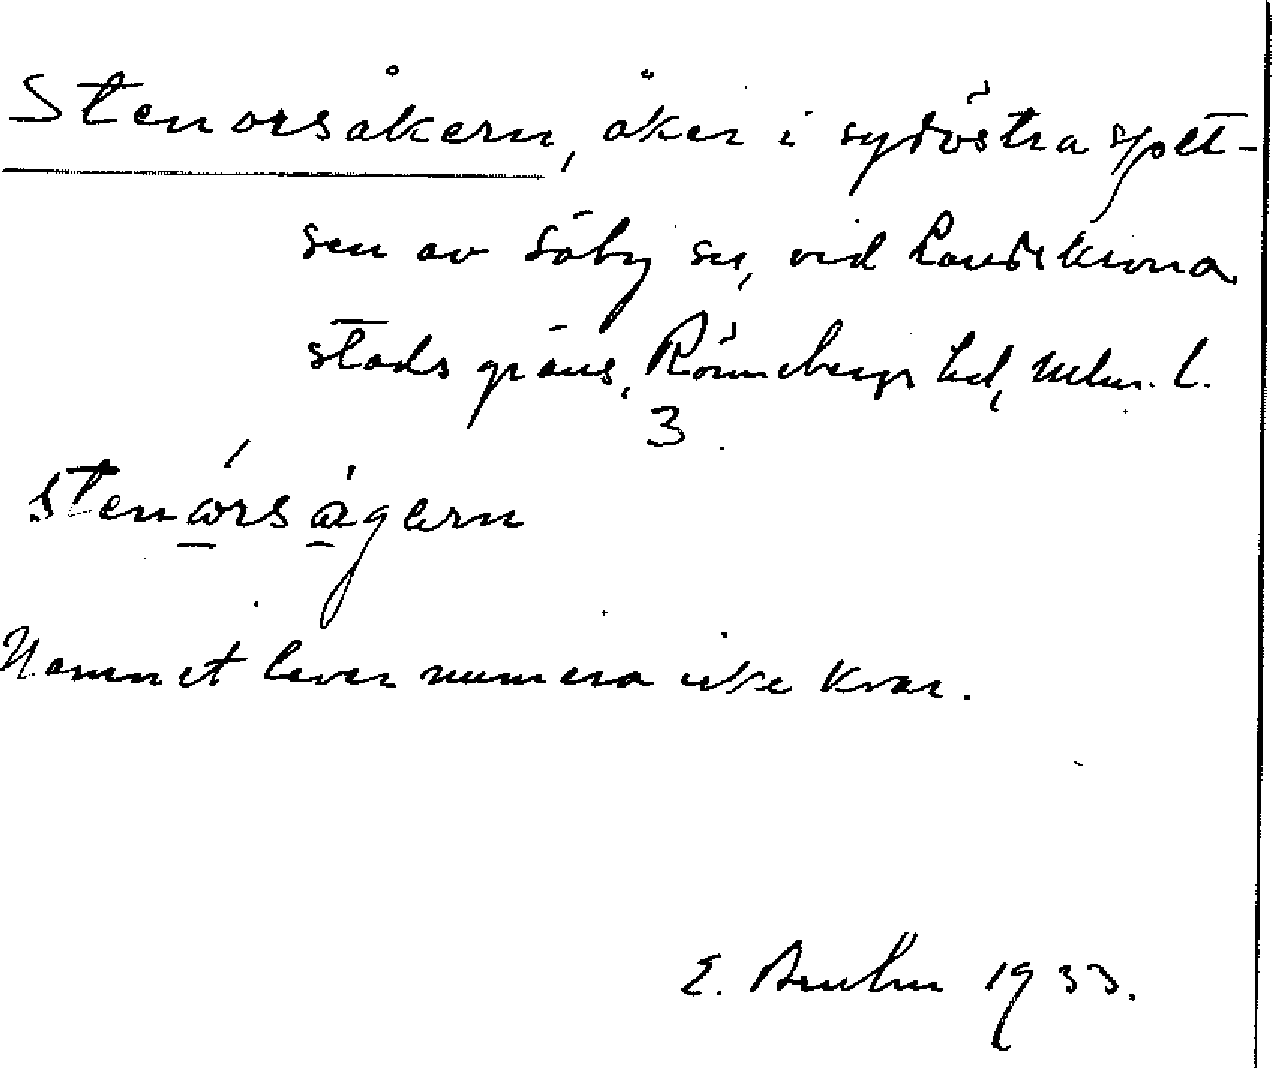 Stenorsåkern, åker i sydöstra spet-
sen av Säby sn, vid Landskrona
stads gräns, Rönnebergs hd, Mlm. l.
3
stenórsågern
Namnet lever numera icke kvar.
E. Bruhn 1933.